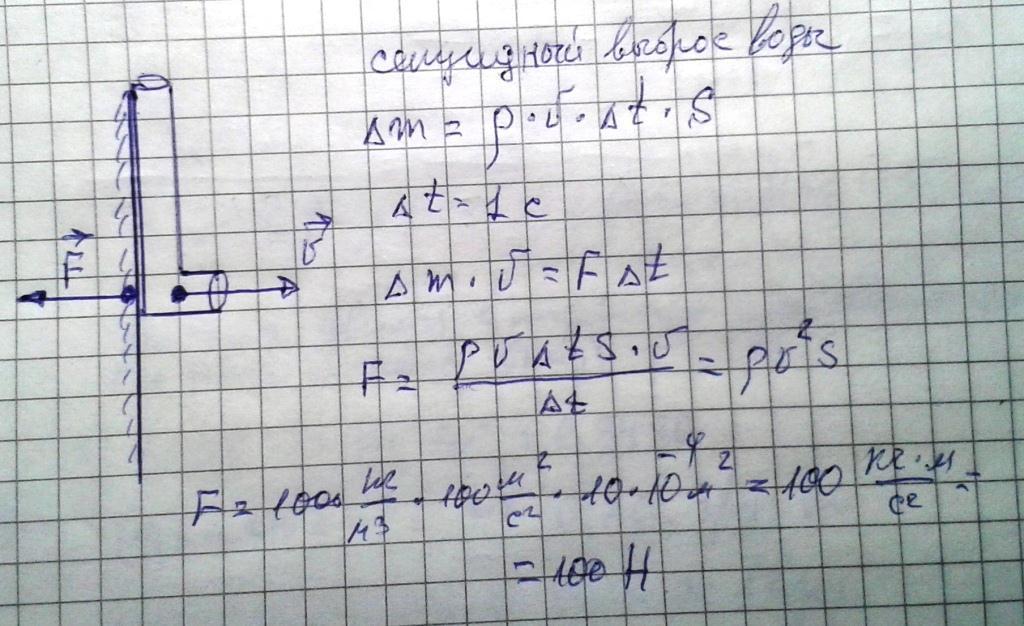 секундный выброс воды
Δm = ρ·υ·Δt·S
Δt = 1 с
F⃗
υ⃗
Δm·υ = FΔt
F = ρυΔtS·υ / Δt = ρυ²S
F = 1000 кг/м³ · 100 м²/с² · 10·10⁻⁴ м² = 100 кг·м/с² =
= 100 Н